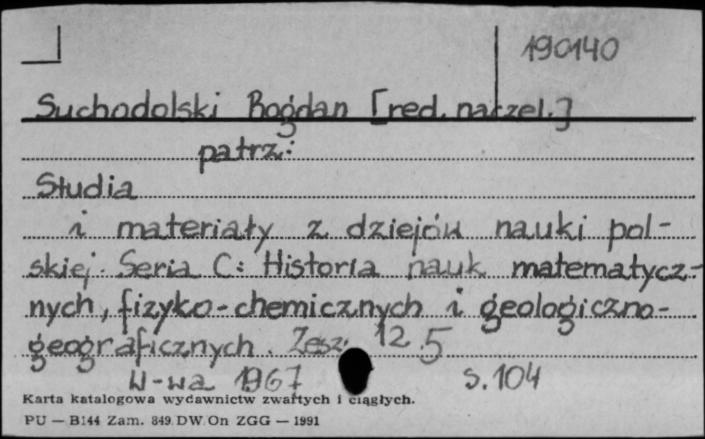 190140
Suchodolski Bogdan [red. naczel.]
patrz:
Studia
i materiały z dziejów nauki pol-
skiej. Seria C: Historia nauk matematycz-
nych, fizyko-chemicznych i geologiczno-
geograficznych. Zesz. 12.5
W-wa 1967 s. 104
Karta katalogowa wydawnictw zwartych i ciągłych.
PU — B144 Zam. 849 DW On ZGG — 1991